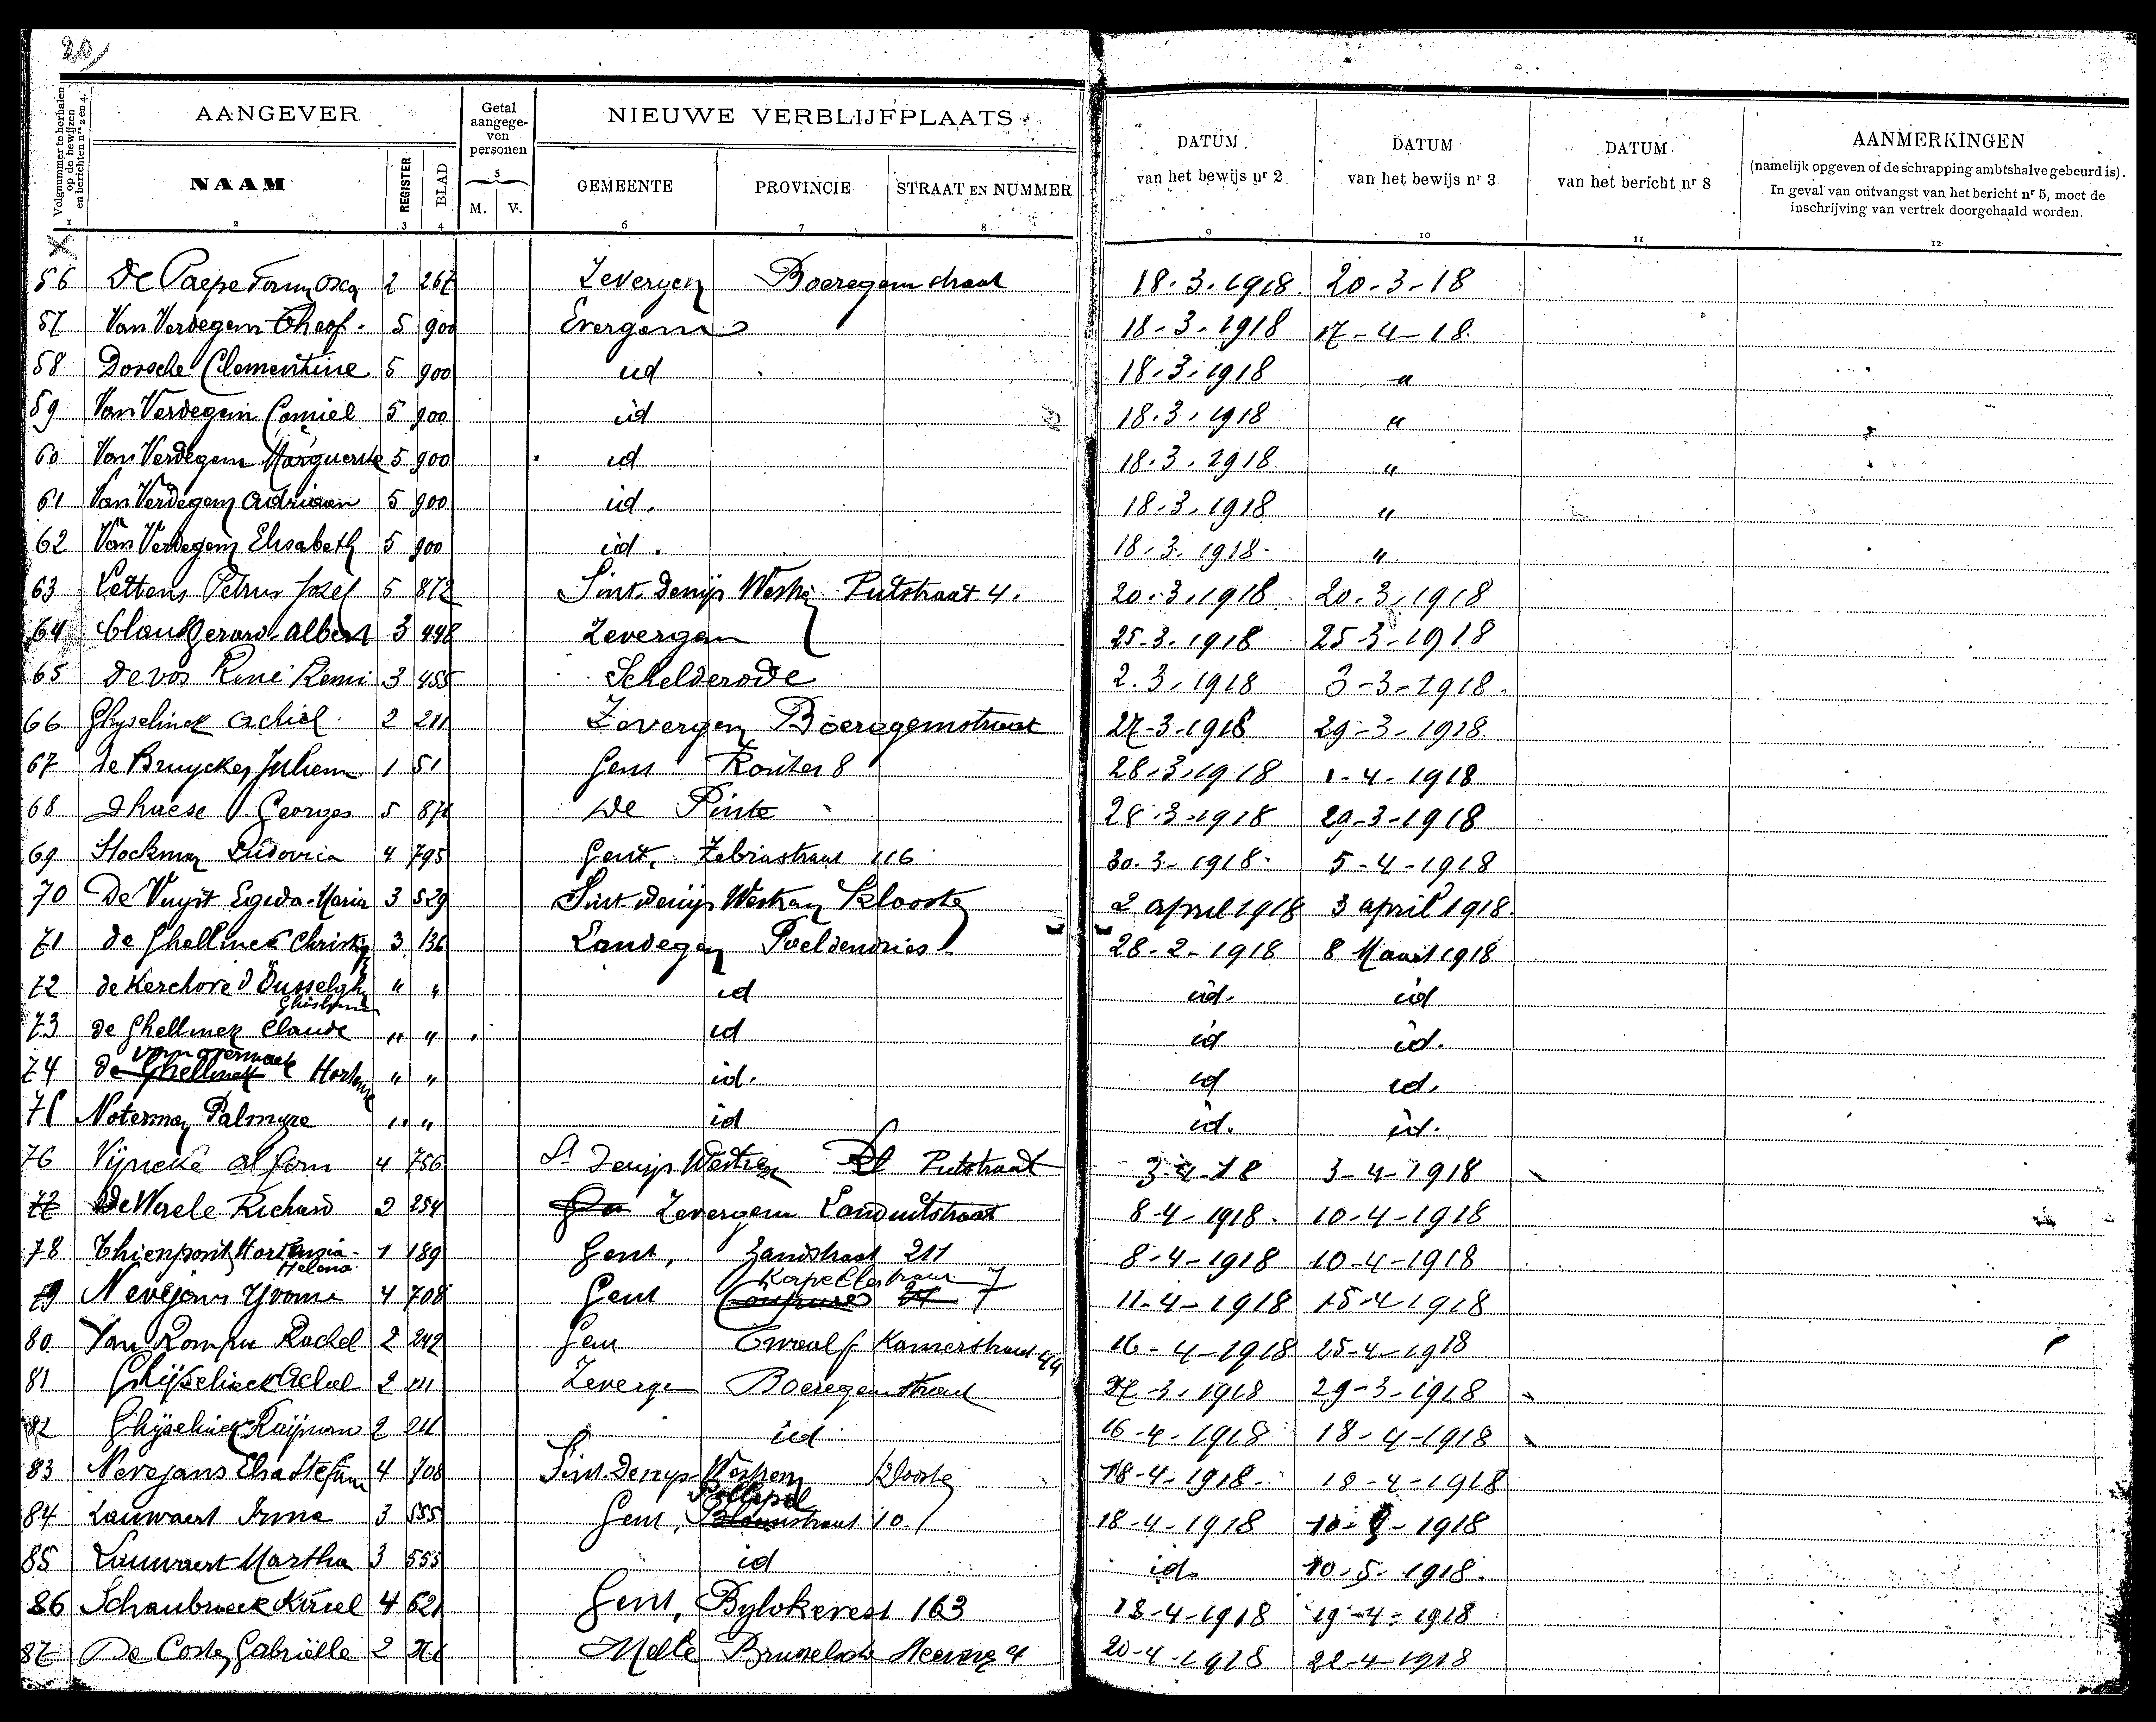 20
Volgnummer te herhalen op de bewijzen en berichten nrs 2 en 4.
AANGEVER
Getal aangegeven personen
NIEUWE VERBLIJFPLAATS
DATUM van het bewijs nr 2
DATUM van het bewijs nr 3
DATUM van het bericht nr 8
AANMERKINGEN
(namelijk opgeven of de schrapping ambtshalve gebeurd is).
In geval van ontvangst van het bericht nr 5, moet de inschrijving van vertrek doorgehaald worden.
NAAM REGISTER BLAD M. V. GEMEENTE PROVINCIE STRAAT EN NUMMER
1 2 3 4 5 6 7 8 9 10 11 12
56 De Paepe 2 267 Zevergem Boeregemstraat 18.3.1918. 20-3-18
57 Van Verdegem Theof. 5 900 Evergem 18-3-1918 17-4-18.
58 Dossche Clementine 5 900 id 18.3.1918 "
59 Van Verdegem Camiel 5 900 id 18.3.1918 "
60 Van Verdegem Marguerite 5 900 id 18.3.1918 "
61 Van Verdegem Adriaan 5 900 id. 18.3.1918 "
62 Van Verdegem Elisabeth 5 900 id. 18.3.1918 "
63 Lettens Petrus Jozef 5 872 Sint. Denijs Westrem Putstraat 4. 20.3.1918 20.3.1918
64 Claus Gerard-Albert 3 448 Zevergem 25-3-1918 25-3-1918
65 De vos René Remi 3 455 Schelderode 2.3.1918 3-3-1918.
66 Ghyselinck Achiel 2 211 Zevergem Boeregemstraat 27-3-1918 29-3-1918
67 de Bruycker Juliem 1 51 Gent Kouter 8 28.3.1918 1-4-1918
68 Dhaese Georges 5 871 De Pinte 28-3-1918 29-3-1918
69 Stockman Ludovica 4 795 Gent, Zebrastraat 116 30.3-1918. 5-4-1918
70 De Vuyst Egida-Maria 3 529 Sint Denijs Westrem Klooster 2 april 1918 3 april 1918.
71 de Ghellinck 3 136 Landegem Poeldendries 28-2-1918 8 Maart 1918
72 de Kerchove d'Ousselghem Ghislaine " " id id. id
73 de Ghellinck Claude " " id id id.
74 van overmaele de Ghellinck Hortense " " id. id id.
75 Noterman Palmyre " " id id. id.
76 Vyncke Alfons 4 756 St Denijs Westrem Putstraat 3-4-18 3-4-1918
77 De Waele Richard 2 254 Zevergem Landuitstraat 8-4-1918. 10-4-1918
78 Thienpont Hortensia-Helena 1 189 Gent, Zandstraat 211 8-4-1918 10-4-1918
79 Nevejans Yvonne 4 708 Gent Kapellestraat 7 11-4-1918 15-4-1918
80 Van Rompu Rachel 2 242 Gent Twaalf Kamerstraat 44 16-4-1918 25-4-1918
81 Ghijselinck Achiel 2 211 Zevergem Boeregemstraat 27-3-1918 29-3-1918
82 Ghijselinck 2 211 id 16-4-1918 18-4-1918
83 Nevejans Elsa 4 708 Sint-Denijs-Westrem Klooster 18-4-1918 18-4-1918
84 Lauwaert Irma 3 555 Gent, Pollepelstraat 10. 18-4-1918 10-5-1918
85 Lauwaert Martha 3 555 id id. 10-5-1918.
86 Schaubroeck Kiriel 4 621 Gent, Bylokevest 163 18-4-1918 19-4-1918
87 De Coster Gabriëlle 2 Melle Brusselsche Steenweg 4 20-4-1918 22-4-1918